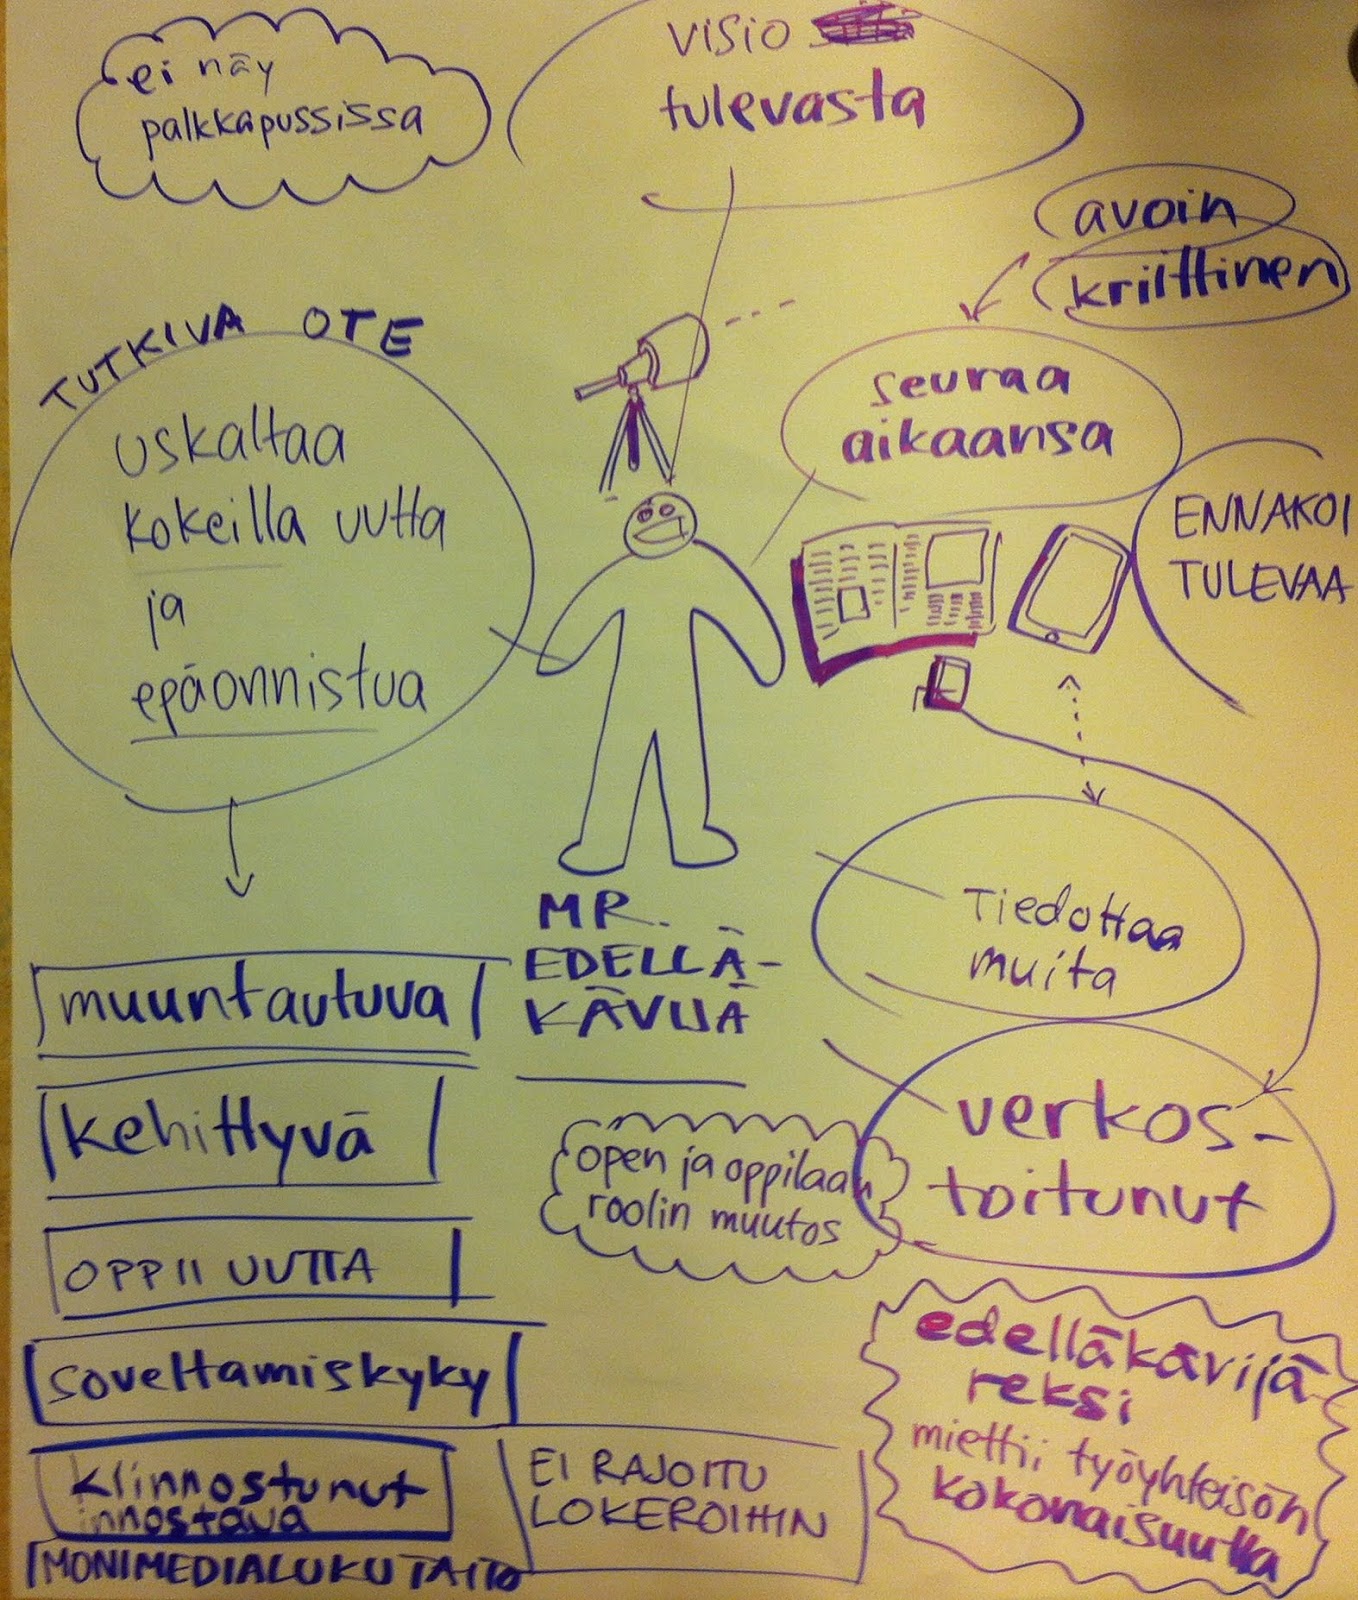 ei näy
palkkapussissa
visio
tulevasta
avoin
kriittinen
TUTKIVA OTE
uskaltaa
kokeilla uutta
ja
epäonnistua
seuraa
aikaansa
ENNAKOI
TULEVAA
Tiedottaa
muita
MR.
EDELLÄ-
KÄVIJÄ
muuntautuva
kehittyvä
OPPII UUTTA
soveltamiskyky
innostava
MONIMEDIALUKUTAITO
EI RAJOITU
LOKEROIHIN
open ja oppilaan
roolin muutos
verkos-
toitunut
edelläkävijä
reksi
miettii työyhteisön
kokonaisuutta